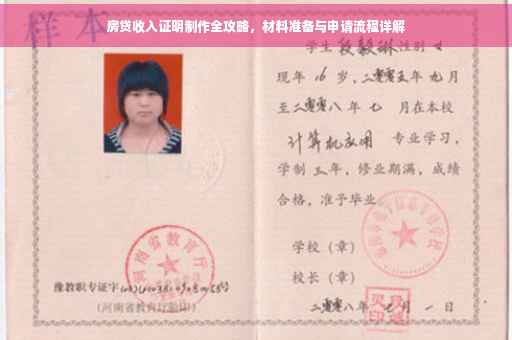 房贷收入证明制作全攻略，材料准备与申请流程详解
样本
学生段毅琳性别女
现年16岁，二零零五年九月
至二零零八年七月在本校
计算机应用 专业学习，
学制三年，修业期满，成绩
合格，准予毕业
学校（章）
校长（章）
二零零八年 月一日
河南省教育厅
豫教职专证字
（河南省教育厅监印）